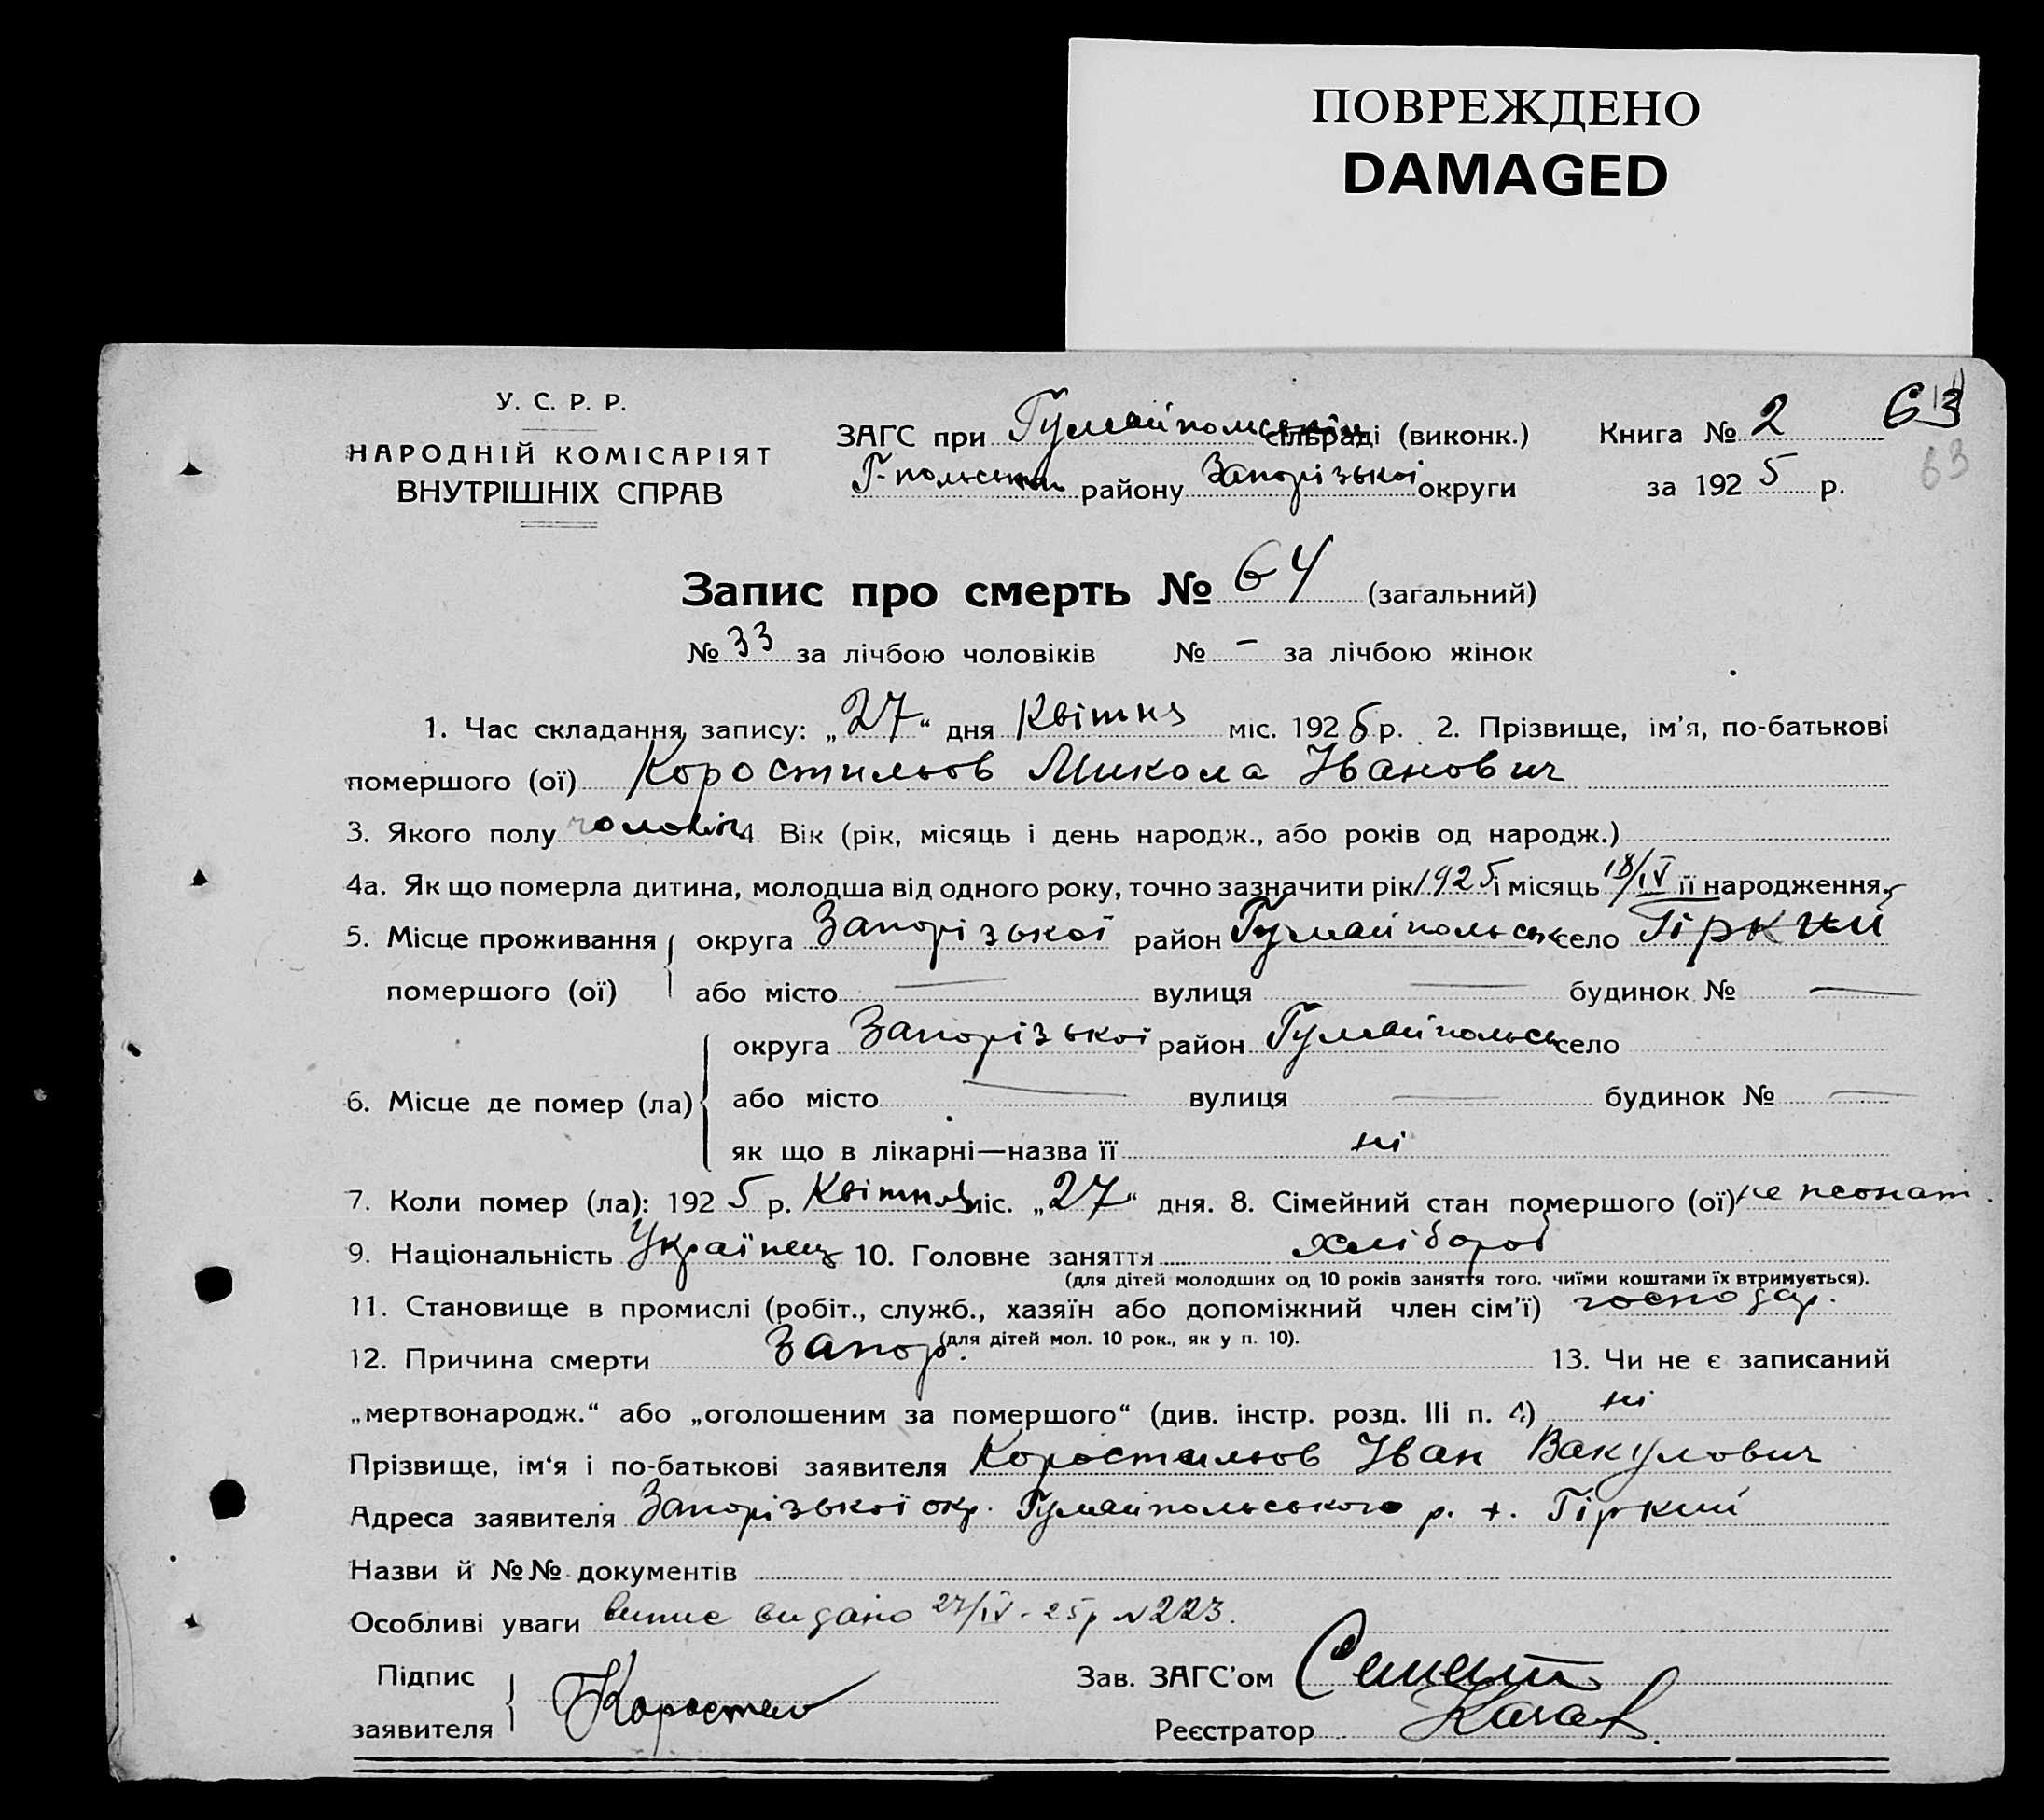 ПОВРЕЖДЕНО
DAMAGED
У. С. Р. Р.
НАРОДНІЙ КОМІСАРІЯТ
ВНУТРІШНІХ СПРАВ
ЗАГС при Гуляйпольськім сільраді (виконк.)
Г-польськ району Запорізької округи
Книга № 2 63
за 192 5 р. 63
Запис про смерть № 64 (загальний)
№ 33 за лічбою чоловіків № – за лічбою жінок
1. Час складання запису: „27“ дня Квітня міс. 1925 р. 2. Прізвище, ім’я, по-батькові
помершого (ої) Коростильов Микола Іванович
3. Якого полу чоловіч 4. Вік (рік, місяць і день народж., або років од народж.)
4а. Як що померла дитина, молодша від одного року, точно зазначити рік 1925 і місяць 18/IV її народження
5. Місце проживання помершого (ої) округа Запорізької район Гуляйпольськ село Гіркий
або місто — вулиця — будинок № —
6. Місце де помер (ла) округа Запорізької район Гуляйпольськ село
або місто — вулиця — будинок № —
як що в лікарні—назва її ні
7. Коли помер (ла): 192 5 р. Квітня міс. „27“ дня. 8. Сімейний стан помершого (ої) не жонат.
9. Національність Українец 10. Головне заняття хлібороб
(для дітей молодших од 10 років заняття того, чиїми коштами їх втримується).
11. Становище в промислі (робіт., служб., хазяїн або допоміжний член сім’ї) господар.
(для дітей мол. 10 рок., як у п. 10).
12. Причина смерти Запор. 13. Чи не є записаний
„мертвонародж.“ або „оголошеним за помершого“ (див. інстр. розд. III п. 4) ні
Прізвище, ім‘я і по-батькові заявителя Коростильов Іван Вакулович
Адреса заявителя Запорізької окр. Гуляйпольського р. х. Гіркий
Назви й №№ документів
Особливі уваги випис видано 27/IV-25р №223.
Підпис заявителя Коростил
Зав. ЗАГС’ом
Реєстратор